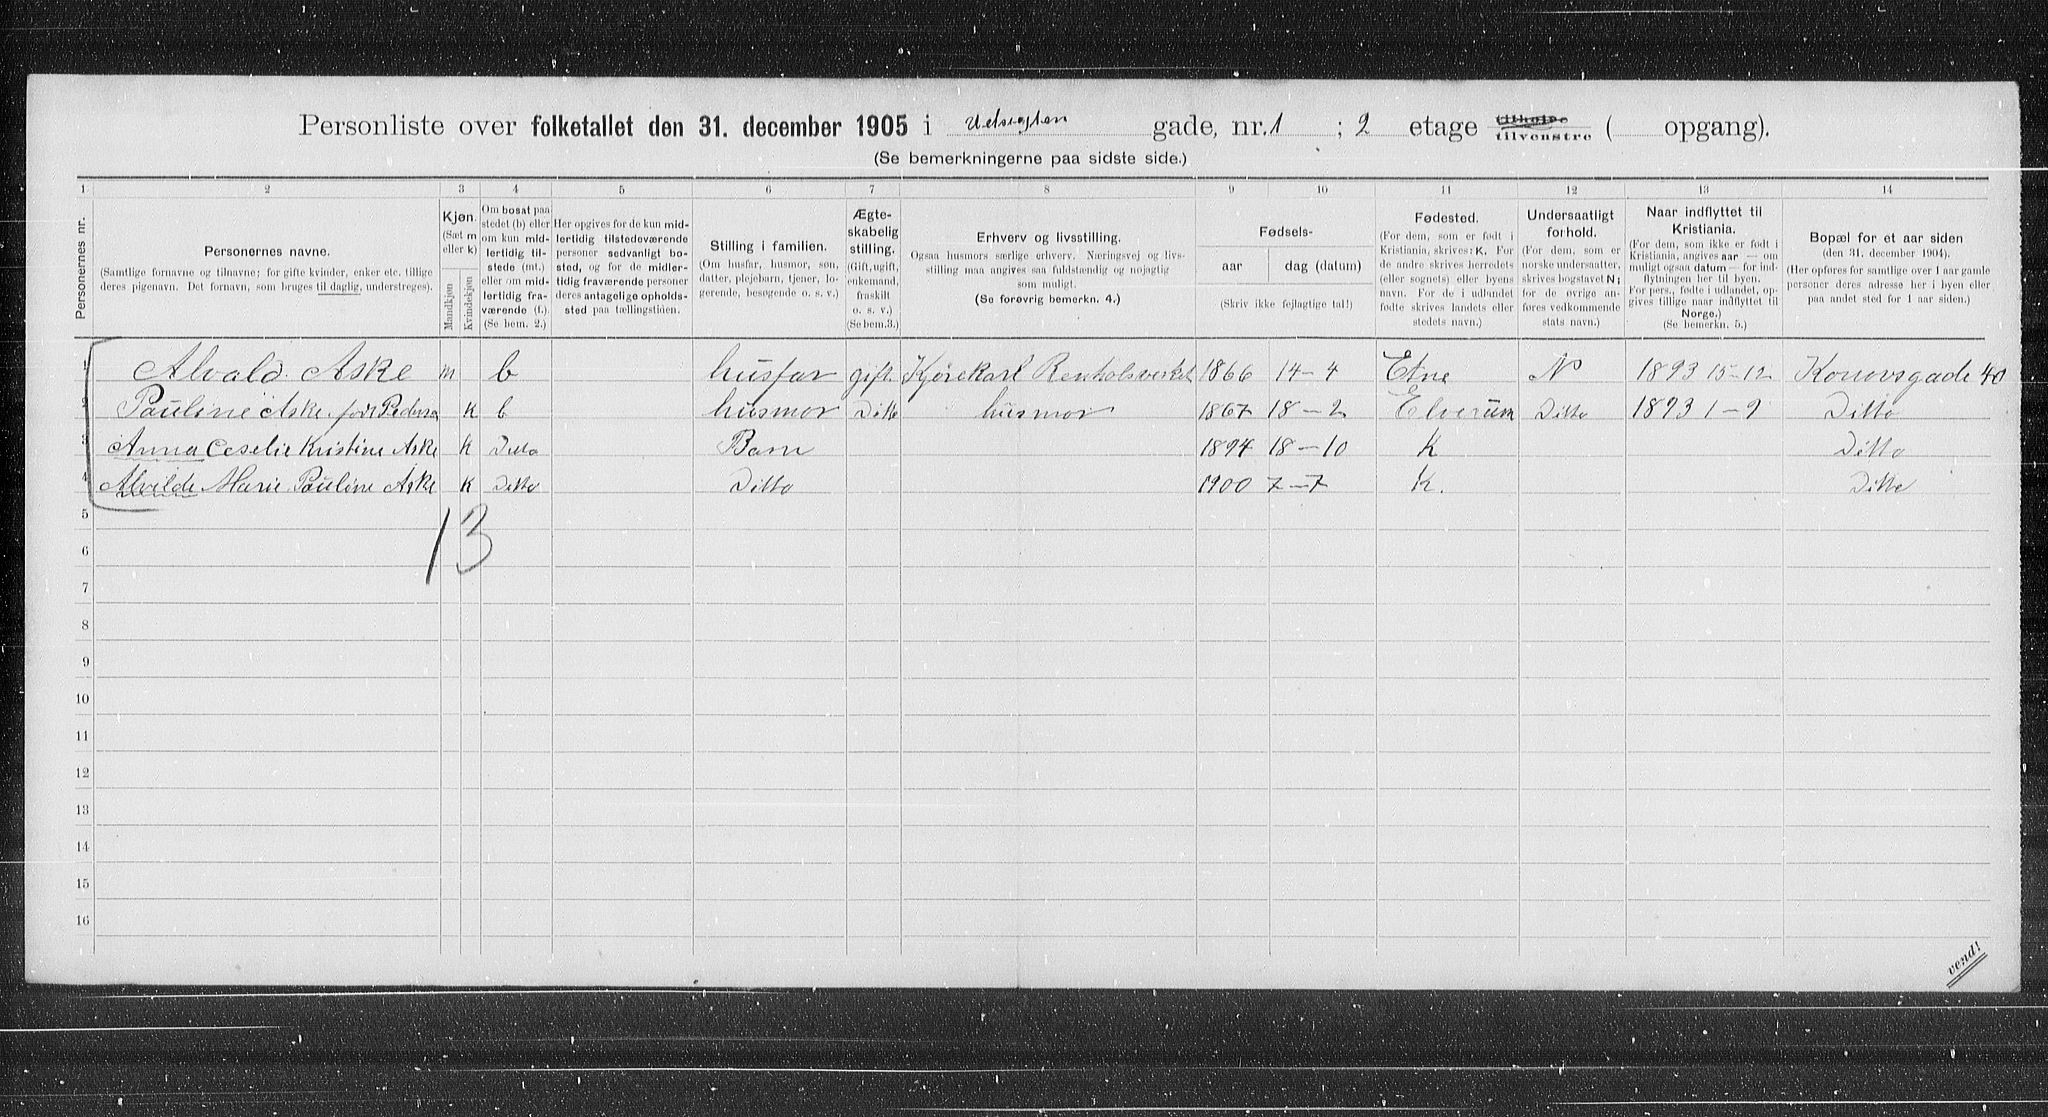 Personliste over folketallet den 31. december 1905 i Udsigten gade, nr. 1 ; 2 etage tilhøire tilvenstre ( opgang).
(Se bemerkningerne paa sidste side.)
1 2 3 4 5 6 7 8 9 10 11 12 13 14
Personernes nr.
Personernes navne.
(Samtlige fornavne og tilnavne; for gifte kvinder, enker etc. tillige deres pigenavn. Det fornavn, som bruges til daglig, understreges).
Kjøn.
(Sæt m eller k)
Mandkjøn
Kvindekjøn
Om bosat paa stedet (b) eller om kun midlertidig tilstede (mt.) eller om midlertidig fraværende (f.). (Se bem. 2.)
Her opgives for de kun midlertidig tilstedeværende personer sedvanligt bosted, og for de midlertidig fraværende personer deres antagelige opholdssted paa tællingstiden.
Stilling i familien.
(Om husfar, husmor, søn, datter, plejebarn, tjener, logerende, besøgende o. s. v.)
Ægteskabelig stilling.
(Gift, ugift, enkemand, fraskilt o. s. v.) (Se bem. 3.)
Erhverv og livsstilling.
Ogsaa husmors særlige erhverv. Næringsvej og livsstilling maa angives saa fuldstændig og nøjagtig som muligt.
(Se forøvrig bemerkn. 4.)
Fødsels-
aar
dag (datum)
(Skriv ikke fejlagtige tal!)
Fødested.
(For dem, som er født i Kristiania, skrives: K. For de andre skrives herredets (eller sognets) eller byens navn. For de i udlandet fødte skrives landets eller stedets navn.)
Undersaatligt forhold.
(For dem, som er norske undersaatter, skrives bogstavet N; for de øvrige anføres vedkommende stats navn.)
Naar indflyttet til Kristiania.
(For dem, som ikke er født i Kristiania, angives aar — om muligt ogsaa datum — for indflytningen her til byen. For pers., fødte i udlandet, opgives tillige naar indflyttet til Norge.)
(Se bemerkn. 5.)
Bopæl for et aar siden
(den 31. december 1904).
(Her opføres for samtlige over 1 aar gamle personer deres adresse her i byen eller paa andet sted for 1 aar siden.)
1 Alvald Aske m b husfar gift Kjørekarl Renholdsverket 1866 14-4 Etne N 1893 15-12 Konovsgade 40
2 Pauline Aske født Pedersen K b husmor Ditto husmor 1867 18-2 Elverum Ditto 1893 1-9 Ditto
3 Anna Ceselie Kristine Aske K Ditto Barn 1894 18-10 K Ditto
4 Alvilde Marie Pauline Aske K Ditto Ditto 1900 7-7 K. Ditto
13
5
6
7
8
9
10
11
12
13
14
15
16
vend!